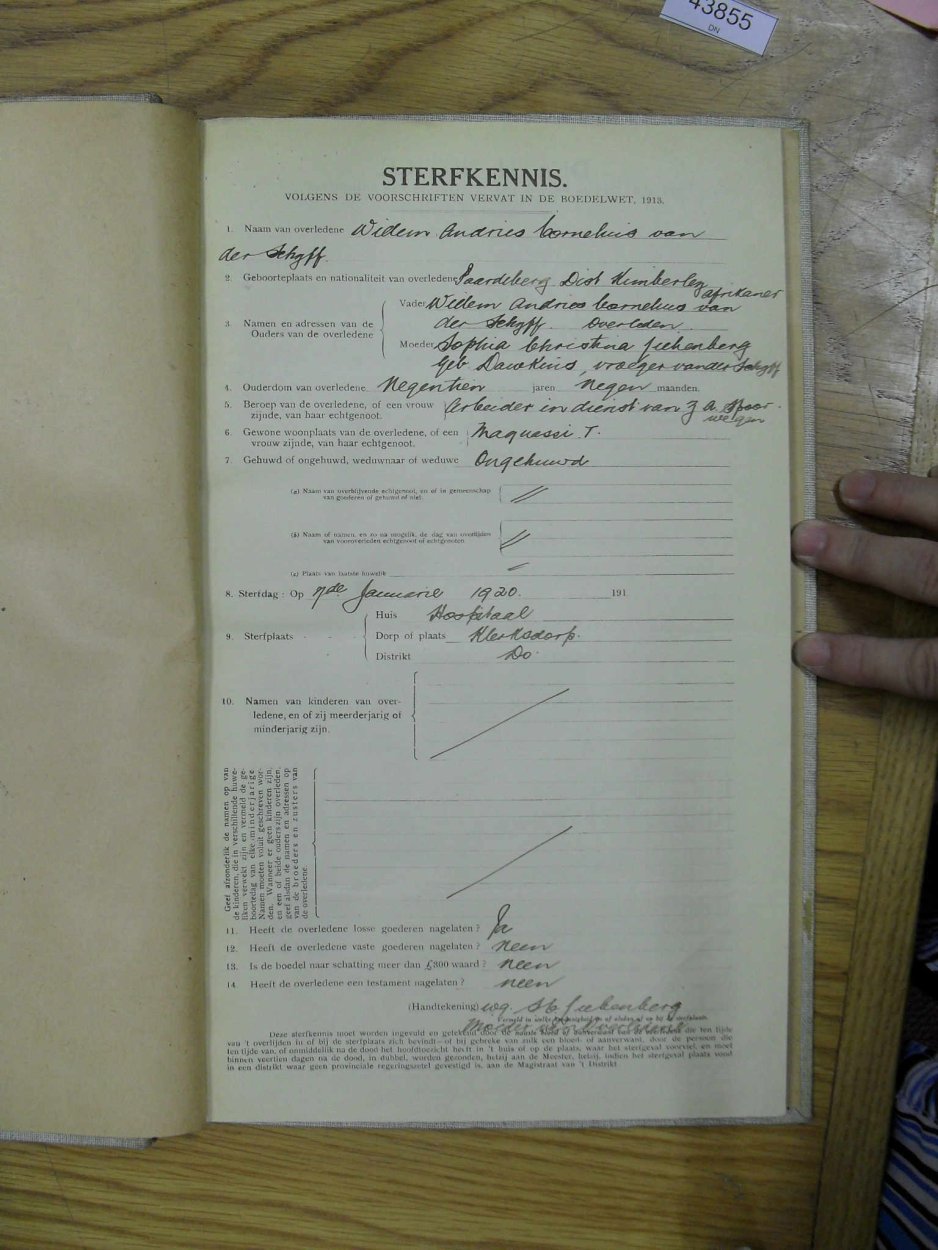 43855
DN
STERFKENNIS.
VOLGENS DE VOORSCHRIFTEN VERVAT IN DE BOEDELWET, 1913.
1. Naam van overledene Willem Andries Cornelius van
der Schyff.
2. Geboorteplaats en nationaliteit van overledene Paardeberg Dist Kimberley
afrikaner
3. Namen en adressen van de Ouders van de overledene
Vader Willem Andries Cornelius van
der Schyff. Overleden
Moeder Sophia Christina Liebenberg
Geb Dawkins, vroeger van der Schyff
4. Ouderdom van overledene Negentien jaren negen maanden.
5. Beroep van de overledene, of een vrouw
zijnde, van haar echtgenoot. Arbeider in dienst van Z A Spoor-
wegen
6. Gewone woonplaats van de overledene, of een
vrouw zijnde, van haar echtgenoot. Maquassi T.
7. Gehuwd of ongehuwd, weduwnaar of weduwe Ongehuwd
(a) Naam van overblijvende echtgenoot, en of in gemeenschap
van goederen of gehuwd of niet.
(b) Naam of namen, en zo na mogelik, de dag van overlijden
van vooroverleden echtgenoot of echtgenoten
(c) Plaats van laatste huwelik
8. Sterfdag: Op 7de Januarie 1920. 191
9. Sterfplaats
Huis Hospitaal
Dorp of plaats Klerksdorp.
Distrikt Do.
10. Namen van kinderen van over-
ledene, en of zij meerderjarig of
minderjarig zijn.
Geef afzonderlik de namen op van
de kinderen, die in verschillende huwe-
liken verwekt zijn en vermeld de ge-
boortedag van elke minderjarige
Namen moeten voluit geschreven wor-
den. Wanneer er geen kinderen zijn,
en een of beide ouders zijn overleden,
geef alsdan de namen en adressen op
van de broeders en zusters van
de overledene.
11. Heeft de overledene losse goederen nagelaten? Ja
12. Heeft de overledene vaste goederen nagelaten? neen
13. Is de boedel naar schatting meer dan £300 waard? neen
14 Heeft de overledene een testament nagelaten? neen
(Handtekening) wg. S C Liebenberg
Moeder van
Deze sterfkennis moet worden ingevuld en getekend door de naaste bloed of aanverwant van de overledene die ten tijde
van 't overlijden in of bij de sterfplaats zich bevindt—of bij gebreke van zulk een bloed- of aanverwant, door de persoon die
ten tijde van, of onmiddellik na de dood het hoofdtoezicht heeft in 't huis of op de plaats, waar het sterfgeval voorviel, en moet
binnen veertien dagen na de dood, in dubbel, worden gezonden, hetzij aan de Meester, hetzij, indien het sterfgeval plaats vond
in een distrikt waar geen provinciale regeringszetel gevestigd is, aan de Magistraat van 't Distrikt